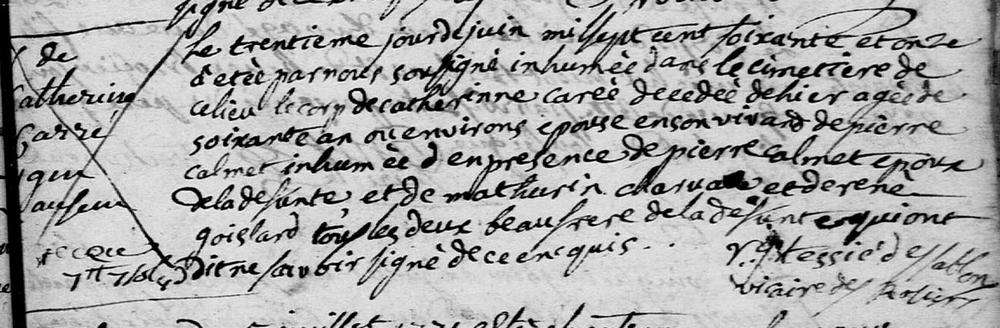 Le trentième jour de juin mil sept cent soixante et onze
a etée par nous sousigné inhumée dans le cimetiere de
ce lieu le corp de catherinne carée decedée dehier agée de
soixante an ou environs epouse en son vivant de pierre
calmet inhumée en presence de pierre calmet epoux
de la defunte et de mathurin et de rené
goislard tous les deux beaufrere de la defunte qui ont
dit ne savoir signé de ce encquis
de
Catherine
Carré
vicaire des Rosiers